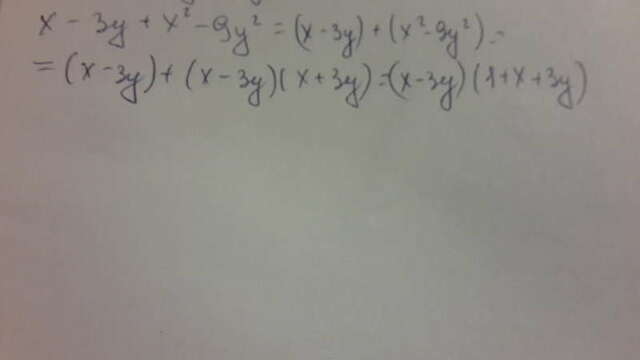 x - 3y + x² - 9y² = (x - 3y) + (x² - 9y²) =
= (x - 3y) + (x - 3y)(x + 3y) = (x - 3y)(1 + x + 3y)